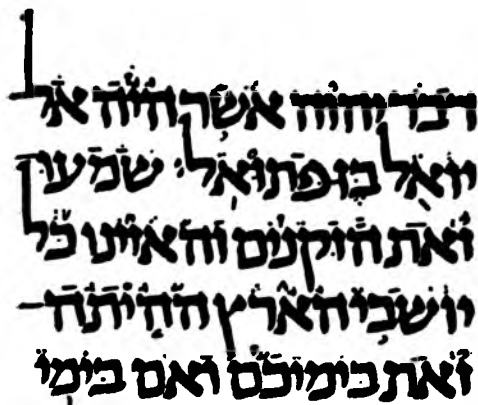 דבר יהוה אשר היה אל
יואל בן פתואל׃ שמעו
זאת הזקנים והאזינו כל
יושבי הארץ ההיתה
זאת בימיכם ואם בימי